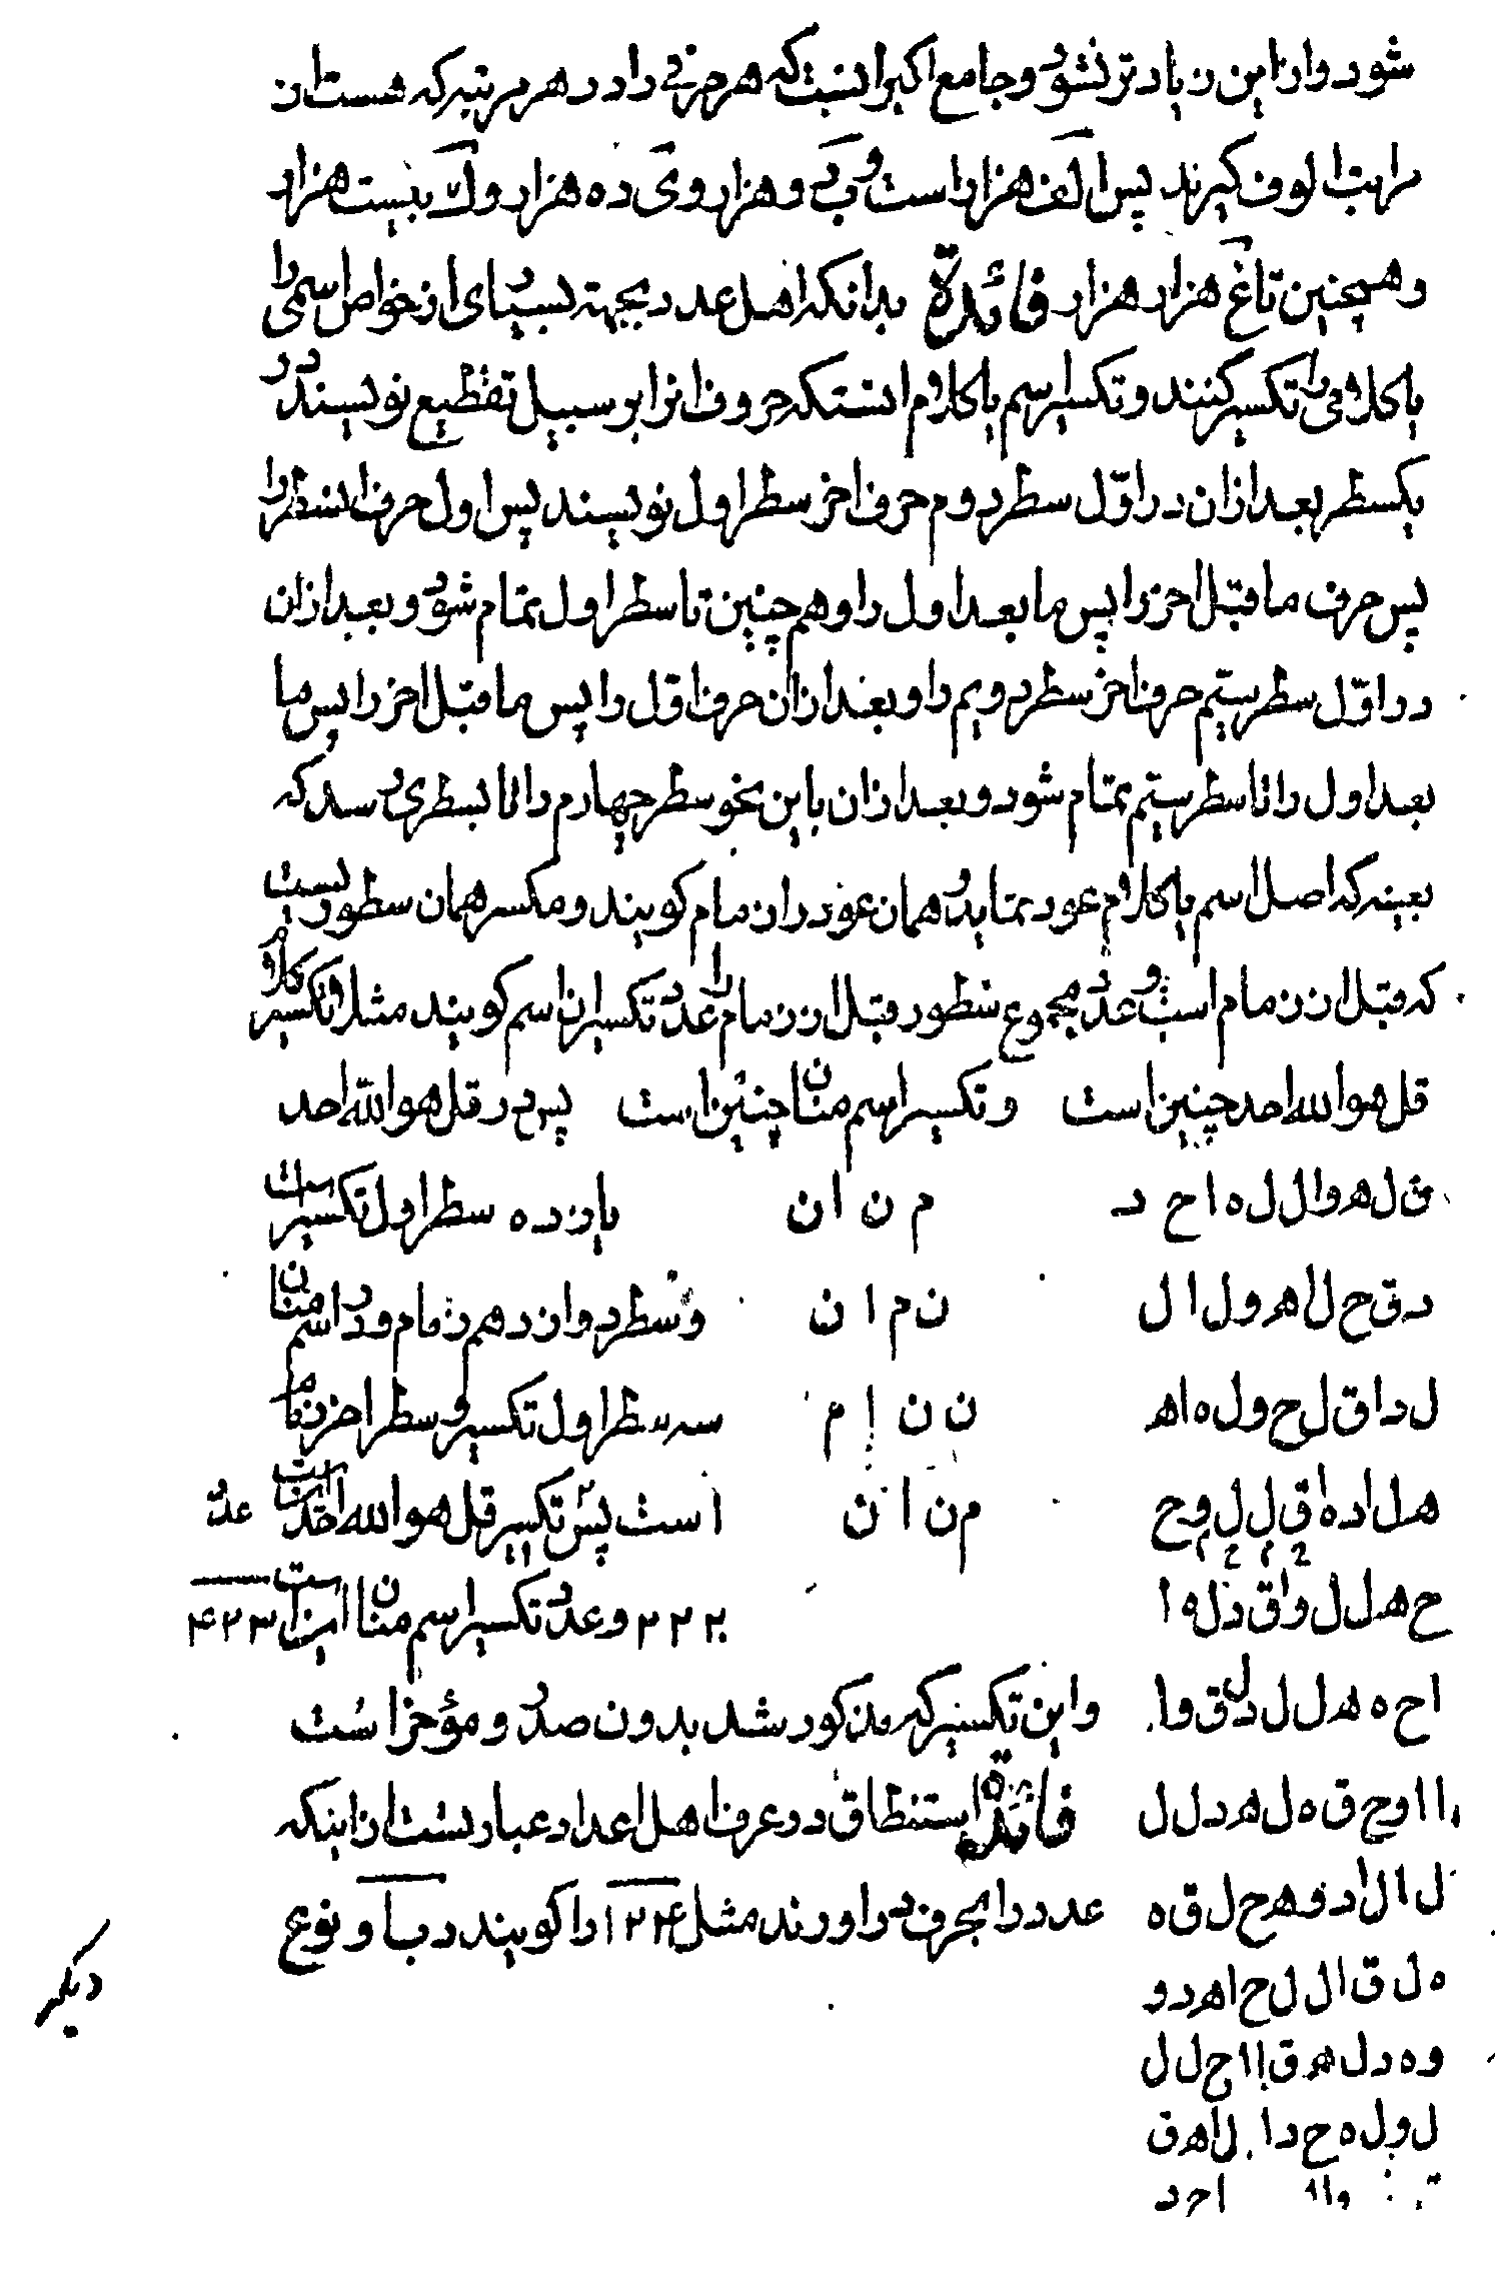 شود و از این زیادتر نشود و جامع اکبر انست که هر حرفی را در هر مرتبه که هست ان
مراتب الوف کیرند پس الف هزار است و ب دو هزار و ی ده هزار و ک بیست هزار
و همچنین تا غ هزار هزار فائدة بدانکه اهل عدد بجهة بسیاری از خواص اسمی را
یا کلامی را تکسیر کنند و تکسیر اسم یا کلام انستکه حروف انرا بر سبیل تقطیع نویسند در
یکسطر بعد از ان در اوّل سطر دوم حرف اخر سطر اول نویسند پس اول حرف انسطر را
پس حرف ما قبل اخر را پس ما بعد اول را و هم چنین تا سطر اول تمام شود و بعد از ان
در اوّل سطر سیّم حرف اخر سطر دویم را و بعد از ان حرف اوّل را پس ما قبل اخر را پس ما
بعد اول را تا سطر سیّم تمام شود و بعد از ان باین نحو سطر چهارم را تا بسطری رسد که
بعینه که اصل اسم یا کلام عود نماید و همان عود را زمام کویند و مکسر همان سطوریست
که قبل از زمام است و عدد مجموع سطور قبل از زمام را عدد تکسیر ان اسم کویند مثلا تکسیر کلام
قل هو الله احد چنین است و تکسیر اسم منان چنین است پس در قل هو الله احد
ق ل ه و ا ل ل ه ا ح د م ن ا ن یازده سطر اول تکسیر است
د ق ح ل ا ه ه و ل ا ل ن م ا ن و سطر دوازدهم زمام و در اسم منان
ل د ا ق ل ح و ل ه ا ه ن ن ا م سه سطر اول تکسیر و سطر اخر زمام
ه ل ا د ه ا ق ل ل و ح م ن ا ن است پس تکسیر قل هو الله احد ان است عدد
ح ه و ل ل ا ل ق د ا ه ۲۲۲ و عدد تکسیر اسم منان این است ۴۲۳
ا ح ه ه ل ل د ل ق و ا و این تکسیر که مذکور شد بدون صدر و مؤخر است
ا ا و ح ق ه ل ه د ل ل فائدة استنطاق در عرف اهل اعداد عبارتست از اینکه
ل ا ل ا د و ه ح ل ق ه عدد را بحرف در اورند مثل ۱۲۴ را کویند دبا و نوع
ه ل ق ا ل ل ح ا ه د و
و ه د ل ه ق ا ا ح ل ل
ل و ل ه ح د ا ل ا ه ق
ا ح د
دیکر